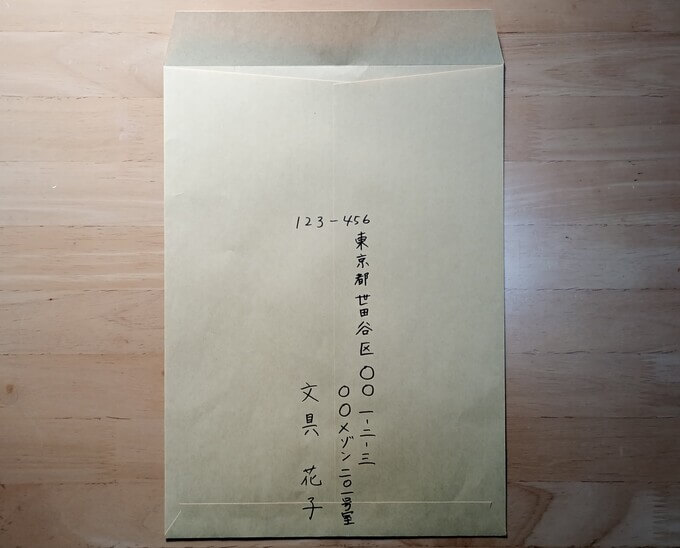 123-456
東京都世田谷区〇〇一-二-三
〇〇メゾン二〇一号室
文具 花子